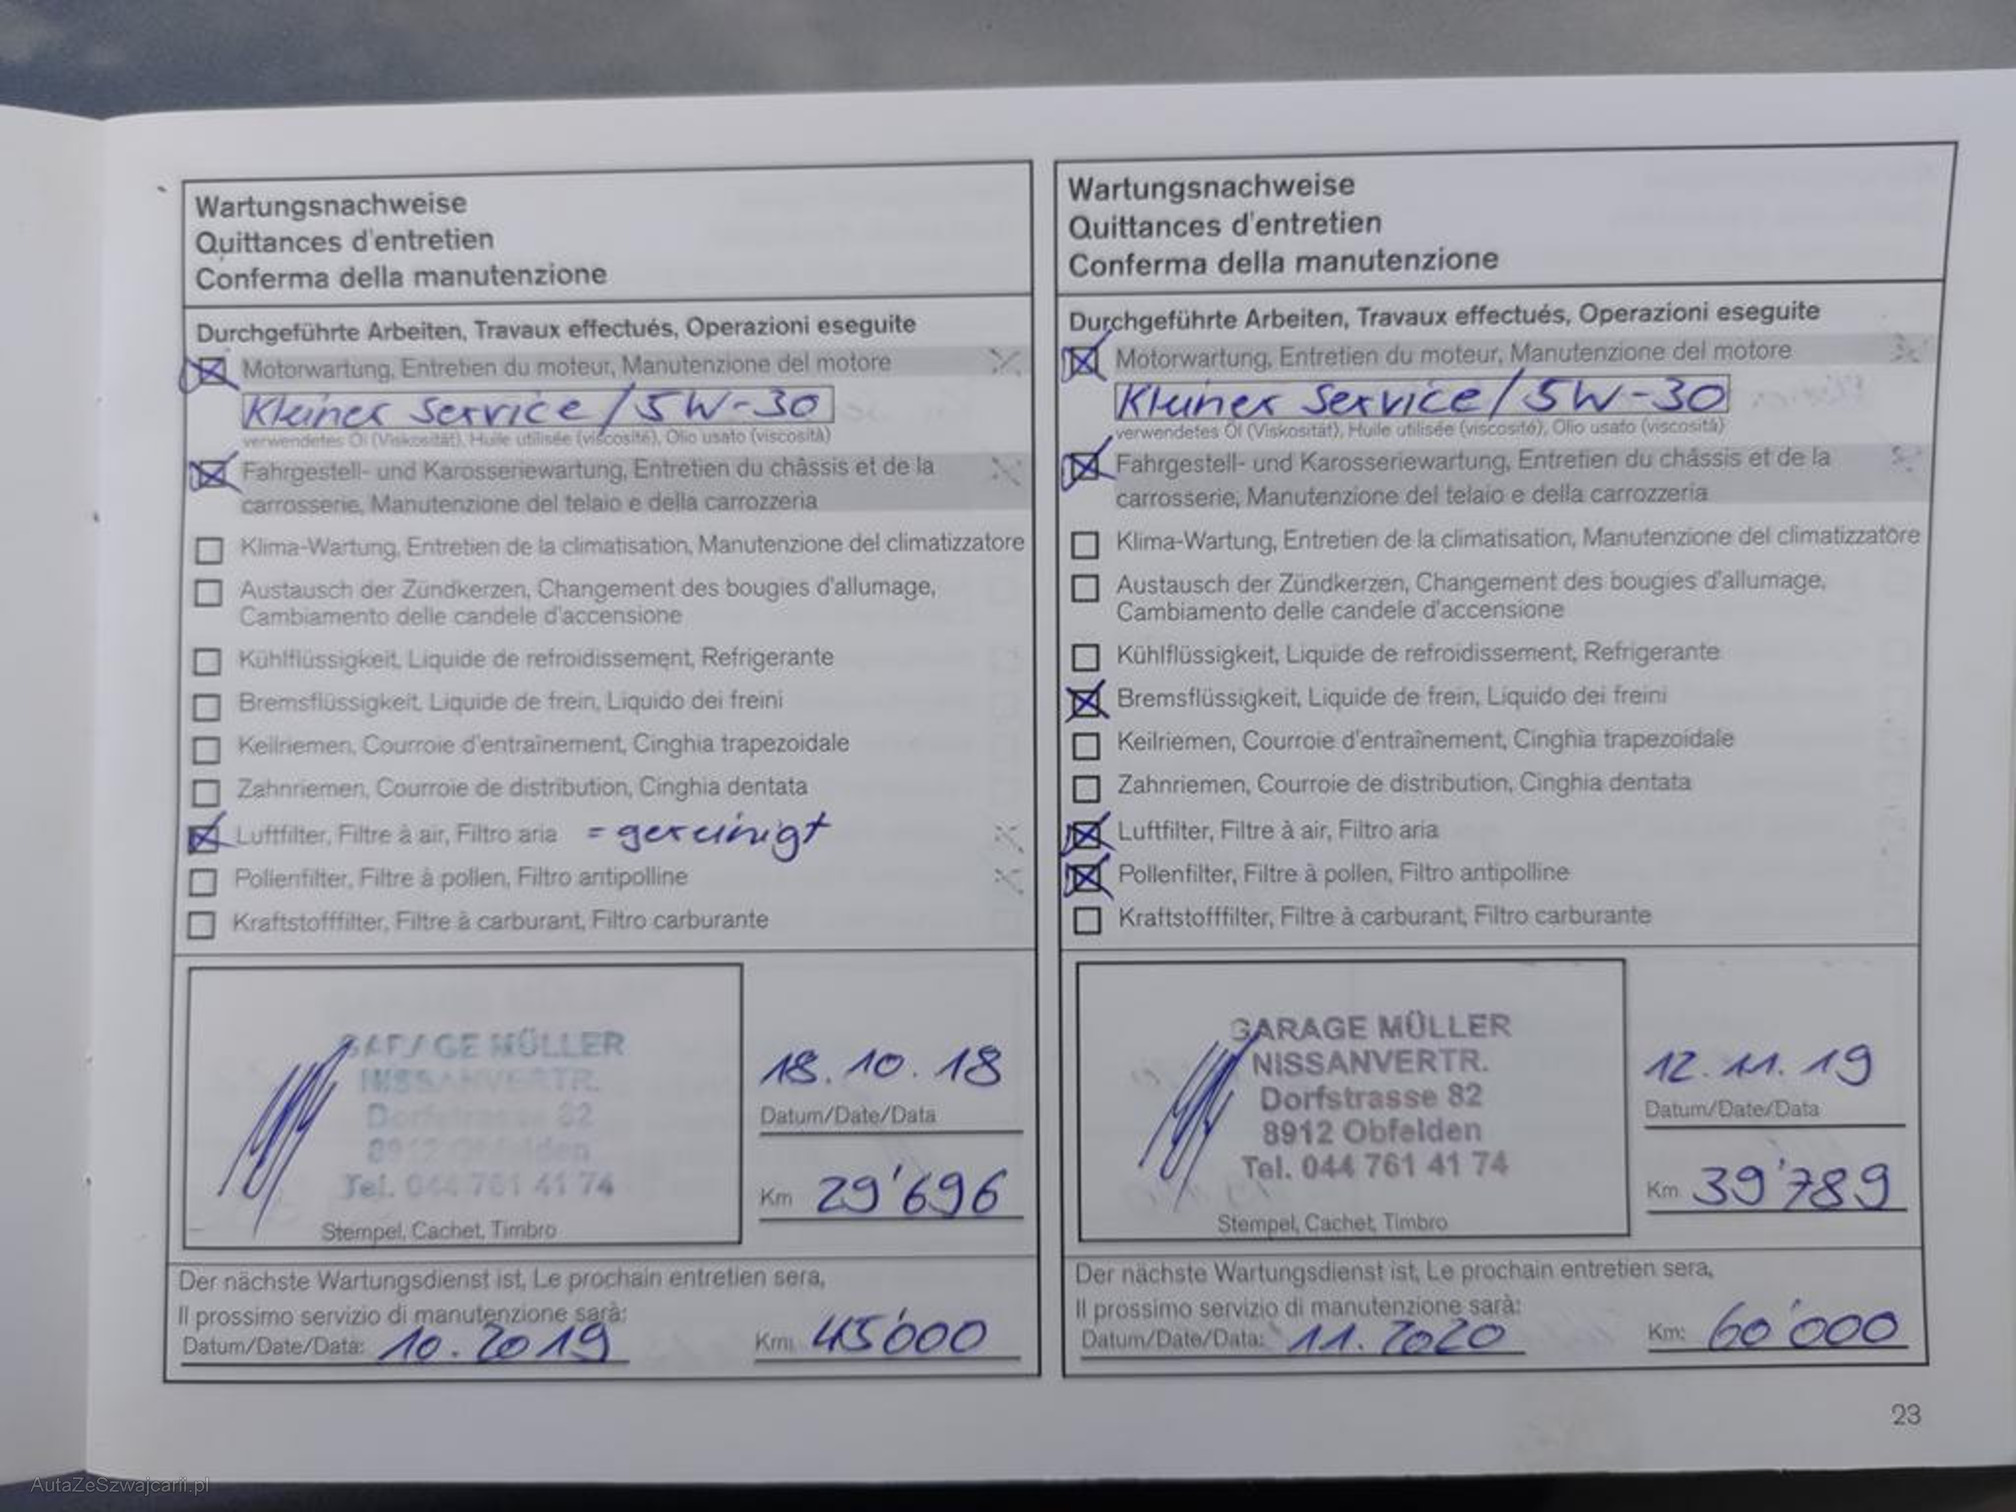 Wartungsnachweise
Quittances d'entretien
Conferma della manutenzione
Durchgeführte Arbeiten, Travaux effectués, Operazioni eseguite
Motorwartung, Entretien du moteur, Manutenzione del motore
Kleiner Service / 5W-30
verwendetes Öl (Viskosität), Huile utilisée (viscosité), Olio usato (viscosità)
Fahrgestell- und Karosseriewartung, Entretien du châssis et de la
carrosserie, Manutenzione del telaio e della carrozzeria
Klima-Wartung, Entretien de la climatisation, Manutenzione del climatizzatore
Austausch der Zündkerzen, Changement des bougies d'allumage,
Cambiamento delle candele d'accensione
Kühlflüssigkeit, Liquide de refroidissement, Refrigerante
Bremsflüssigkeit, Liquide de frein, Liquido dei freini
Keilriemen, Courroie d'entraînement, Cinghia trapezoidale
Zahnriemen, Courroie de distribution, Cinghia dentata
Luftfilter, Filtre à air, Filtro aria = gereinigt
Pollenfilter, Filtre à pollen, Filtro antipolline
Kraftstofffilter, Filtre à carburant, Filtro carburante
GARAGE MÜLLER
NISSANVERTR.
Dorfstrasse 82
8912 Obfelden
Tel. 044 761 41 74
Stempel, Cachet, Timbro
18.10.18
Datum/Date/Data
Km 29'696
Der nächste Wartungsdienst ist, Le prochain entretien sera,
Il prossimo servizio di manutenzione sarà:
Datum/Date/Data: 10.2019 Km: 45'000
Wartungsnachweise
Quittances d'entretien
Conferma della manutenzione
Durchgeführte Arbeiten, Travaux effectués, Operazioni eseguite
Motorwartung, Entretien du moteur, Manutenzione del motore
Kleiner Service / 5W-30
verwendetes Öl (Viskosität), Huile utilisée (viscosité), Olio usato (viscosità)
Fahrgestell- und Karosseriewartung, Entretien du châssis et de la
carrosserie, Manutenzione del telaio e della carrozzeria
Klima-Wartung, Entretien de la climatisation, Manutenzione del climatizzatore
Austausch der Zündkerzen, Changement des bougies d'allumage,
Cambiamento delle candele d'accensione
Kühlflüssigkeit, Liquide de refroidissement, Refrigerante
Bremsflüssigkeit, Liquide de frein, Liquido dei freini
Keilriemen, Courroie d'entraînement, Cinghia trapezoidale
Zahnriemen, Courroie de distribution, Cinghia dentata
Luftfilter, Filtre à air, Filtro aria
Pollenfilter, Filtre à pollen, Filtro antipolline
Kraftstofffilter, Filtre à carburant, Filtro carburante
GARAGE MÜLLER
NISSANVERTR.
Dorfstrasse 82
8912 Obfelden
Tel. 044 761 41 74
Stempel, Cachet, Timbro
12.11.19
Datum/Date/Data
Km 39'789
Der nächste Wartungsdienst ist, Le prochain entretien sera,
Il prossimo servizio di manutenzione sarà:
Datum/Date/Data: 11.2020 Km: 60'000
23
AutaZeSzwajcarii.pl